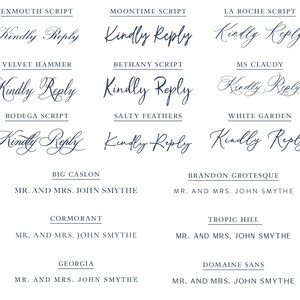 EXMOUTH SCRIPT
Kindly Reply
MOONTIME SCRIPT
Kindly Reply
LA ROCHE SCRIPT
Kindly Reply
VELVET HAMMER
Kindly Reply
BETHANY SCRIPT
Kindly Reply
MS CLAUDY
Kindly Reply
BODEGA SCRIPT
Kindly Reply
SALTY FEATHERS
Kindly Reply
WHITE GARDEN
Kindly Reply
BIG CASLON
MR. AND MRS. JOHN SMYTHE
BRANDON GROTESQUE
MR. AND MRS. JOHN SMYTHE
CORMORANT
MR. AND MRS. JOHN SMYTHE
TROPIC HILL
MR. AND MRS. JOHN SMYTHE
GEORGIA
MR. AND MRS. JOHN SMYTHE
DOMAINE SANS
MR. AND MRS. JOHN SMYTHE